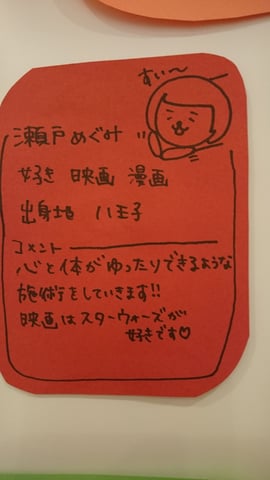 すぃ〜
瀬戸めぐみ
好き 映画 漫画
出身地 八王子
コメント
心と体がゆったりできるような
施術をしていきます!!
映画はスターウォーズが
好きです♡